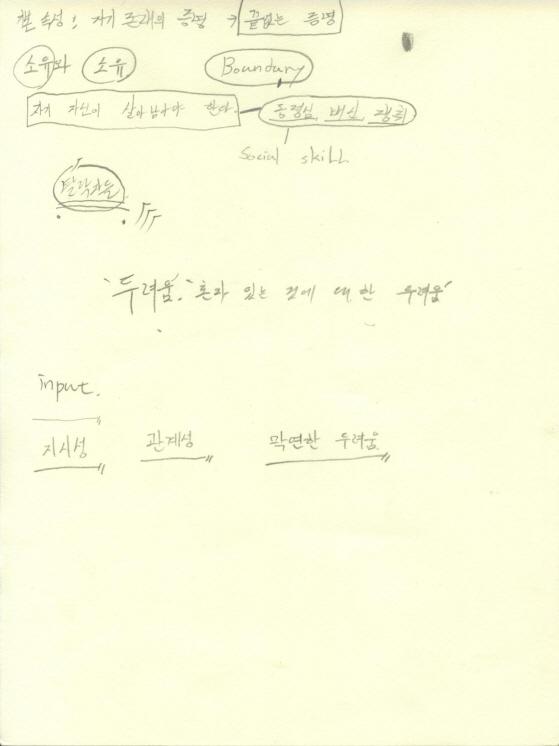 속성! 자기 존재의 증명 → 끝없는 증명
소유와 소유 Boundary
자기 자신이 살아남아야 한다. 동정심, 배신,
Social skill
탈락자들
"두려움." "혼자 있는 것에 대한 두려움"
input.
지시성 관계성 막연한 두려움